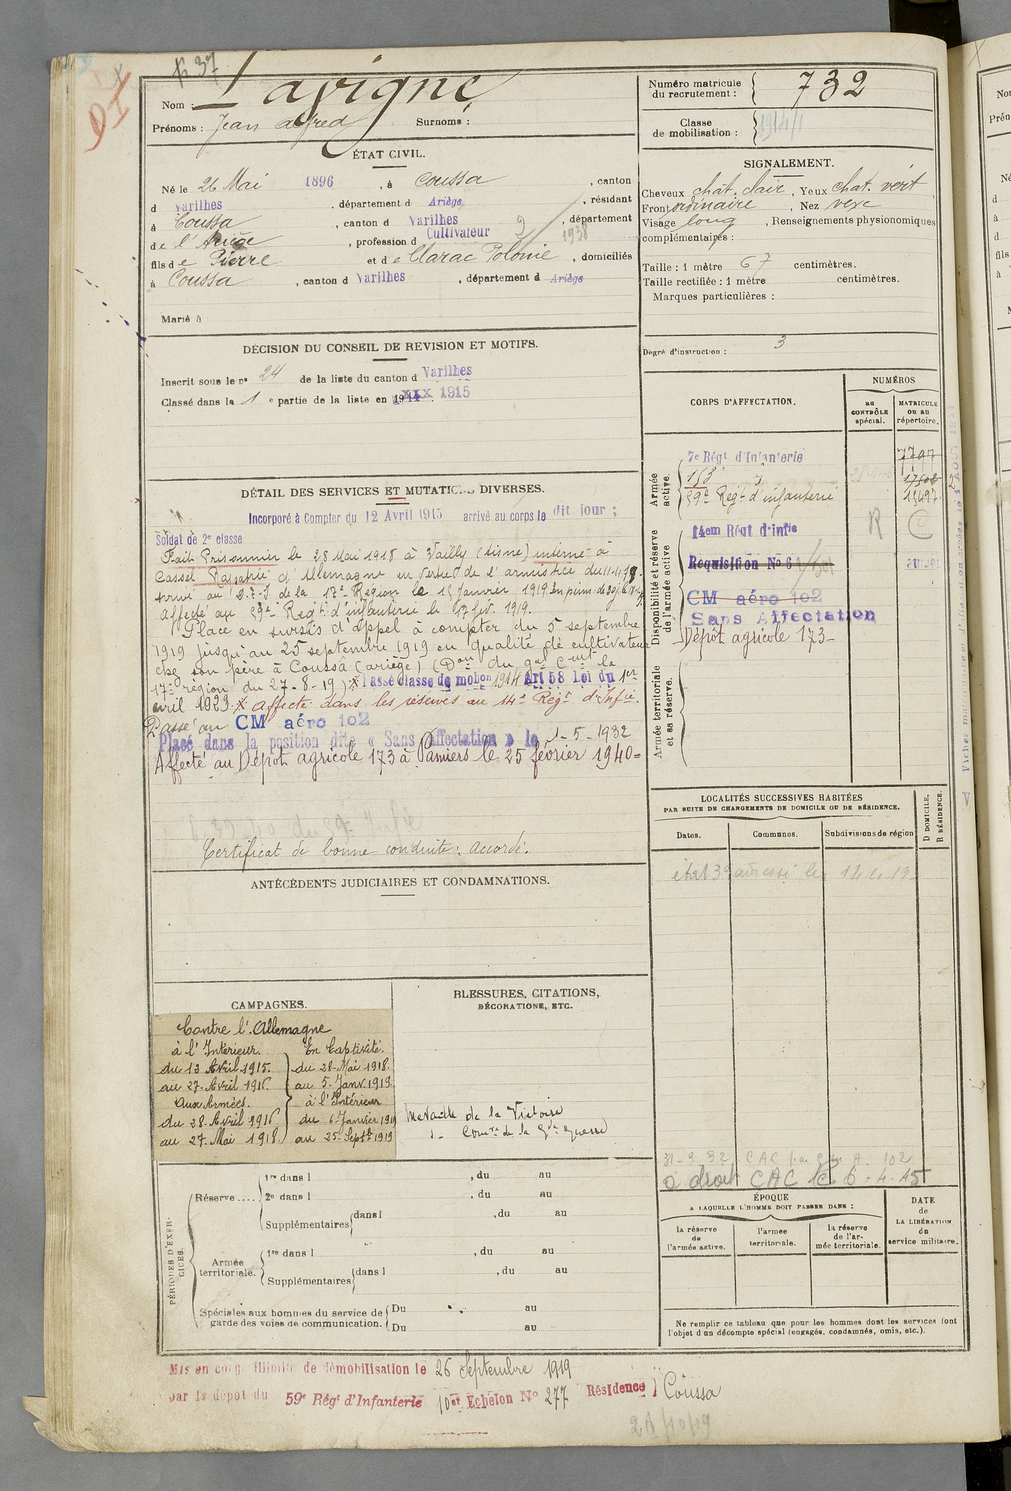 Nom : Lavigne
Prénoms : Jean alfred Surnoms :
ÉTAT CIVIL.
Né le 26 Mai 1896, à Coussa, canton
d Varilhes, département d Ariège, résidant
à Coussa, canton d Varilhes, département
de l'Ariège, profession d Cultivateur
1938
fils de Pierre et de Clarac Polonie, domiciliés
à Coussa, canton d Varilhes, département d Ariège
Marié à
DÉCISION DU CONSEIL DE REVISION ET MOTIFS.
Inscrit sous le no 24 de la liste du canton d Varilhes
Classé dans la 1e partie de la liste en 1915
DÉTAIL DES SERVICES ET MUTATIONS DIVERSES.
Incorporé à Compter du 12 Avril 1915 arrivé au corps le dit jour ;
Soldat de 2e classe
Fait Prisonnier le 28 Mai 1918 à Vailly (Aisne) interné à
Cassel Rapatrié d'Allemagne en vertu de l'armistice du 11-11-18
arrivé au D.T.I de la 17e Région le 15 Janvier 1919
affecté au 59e Regt d'infanterie le
Placé en sursis d'appel à compter du 5 septembre
1919 jusqu'au 25 septembre 1919 en qualité de cultivateur
chez son père à Coussa (ariège) (Don du gal Cmt la
17e région du 27-8-19) Passé classe de mobon 1914 Art 58 Loi du 1er
avril 1923. X Affecté dans les réserves au 14e Regt d'Infie.
Passé au CM aéro 102
Placé dans la position dite « Sans Affectation » le 1-5-1932
Affecté au Dépôt agricole 173 à Pamiers le 25 février 1940=
Certificat de bonne conduite : Accordé.
ANTÉCÉDENTS JUDICIAIRES ET CONDAMNATIONS.
CAMPAGNES.
Contre l'Allemagne
à l'Intérieur.
du 13 Avril 1915.
au 27 Avril 1916
Aux Armées.
du 28 Avril 1916
au 27 Mai 1918
En Captivité.
du 28 Mai 1918.
au 5 Janv. 1919
à l'Intérieur
du 6 Janvier 1919
au 25 Septbre 1919
BLESSURES, CITATIONS,
DÉCORATIONS, ETC.
Médaille de la Victoire
de la Gde Guerre
PÉRIODES D'EXERCICES.
Réserve....
1re dans l , du au
2e dans l , du au
Supplémentaires dans l , du au
Armée territoriale.
1re dans l , du au
Supplémentaires dans l , du au
Spéciales aux hommes du service de
garde des voies de communication.
Du au
Du au
Mis en congé illimité de démobilisation le 26 Septembre 1919
par le dépôt du 59e Régt d'Infanterie 10er Echelon No 277 Résidence Coussa
Numéro matricule
du recrutement : 732
Classe
de mobilisation : 1914
SIGNALEMENT.
Cheveux chat. clair, Yeux chat. vert
Front ordinaire, Nez vexe
Visage long, Renseignements physionomiques
complémentaires :
Taille : 1 mètre 67 centimètres.
Taille rectifiée : 1 mètre centimètres.
Marques particulières :
Degré d'instruction : 3
CORPS D'AFFECTATION.
NUMÉROS
AU CONTRÔLE spécial.
MATRICULE OU AU répertoire.
Armée active.
7e Régt d'Infanterie
59e Regt d'infanterie
Disponibilité et réserve de l'armée active
14em Régt d'Infie
Réquisition No 6
CM aéro 102
Sans Affectation
Dépôt agricole 173
Armée territoriale et sa réserve.
LOCALITÉS SUCCESSIVES HABITÉES
PAR SUITE DE CHANGEMENTS DE DOMICILE OU DE RÉSIDENCE.
Dates.
Communes.
Subdivisions de région
D DOMICILE.
R RÉSIDENCE.
adressé le
à droit CAC 6-4-45
ÉPOQUE
A LAQUELLE L'HOMME DOIT PASSER DANS :
la réserve de l'armée active.
l'armée territoriale.
la réserve de l'armée territoriale.
DATE
de
LA LIBÉRATION
du
service militaire.
Ne remplir ce tableau que pour les hommes dont les services font
l'objet d'un décompte spécial (engagés, condamnés, omis, etc.).